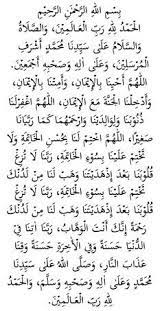 بِسْمِ اللهِ الرَّحْمٰنِ الرَّحِيْمِ
اَلْحَمْدُ لِلّٰهِ رَبِّ الْعَالَمِيْنَ، وَالصَّلَاةُ
وَالسَّلَامُ عَلَى سَيِّدِنَا مُحَمَّدٍ أَشْرَفِ
الْمُرْسَلِيْنَ، وَعَلَى آلِهِ وَصَحْبِهِ أَجْمَعِيْنَ.
اَللّٰهُمَّ أَحْيِنَا بِالْإِيْمَانِ، وَأَمِتْنَا بِالْإِيْمَانِ،
وَأَدْخِلْنَا الْجَنَّةَ مَعَ الْإِيْمَانِ، اَللّٰهُمَّ اغْفِرْلَنَا
ذُنُوْبَنَا وَلِوَالِدَيْنَا وَارْحَمْهُمَا كَمَا رَبَّيَانَا
صِغَارًا، اَللّٰهُمَّ اخْتِمْ لَنَا بِحُسْنِ الْخَاتِمَةِ وَلَا
تَخْتِمْ عَلَيْنَا بِسُوْءِ الْخَاتِمَةِ، رَبَّنَا لَا تُزِغْ
قُلُوْبَنَا بَعْدَ إِذْهَدَيْتَنَا وَهَبْ لَنَا مِنْ لَدُنْكَ
تَخْتِمْ عَلَيْنَا بِسُوْءِ الْخَاتِمَةِ، رَبَّنَا لَا تُزِغْ
قُلُوْبَنَا بَعْدَ إِذْهَدَيْتَنَا وَهَبْ لَنَا مِنْ لَدُنْكَ
رَحْمَةً إِنَّكَ أَنْتَ الْوَهَّابُ، رَبَّنَا آتِنَا فِي
الدُّنْيَا حَسَنَةً وَفِي الْأٰخِرَةِ حَسَنَةً وَقِنَا
عَذَابَ النَّارِ، وَصَلَّى اللهُ عَلَى سَيِّدِنَا
مُحَمَّدٍ وَعَلَى آلِهِ وَصَحْبِهِ وَسَلَّمَ، وَالْحَمْدُ
لِلّٰهِ رَبِّ الْعَالَمِيْنَ.